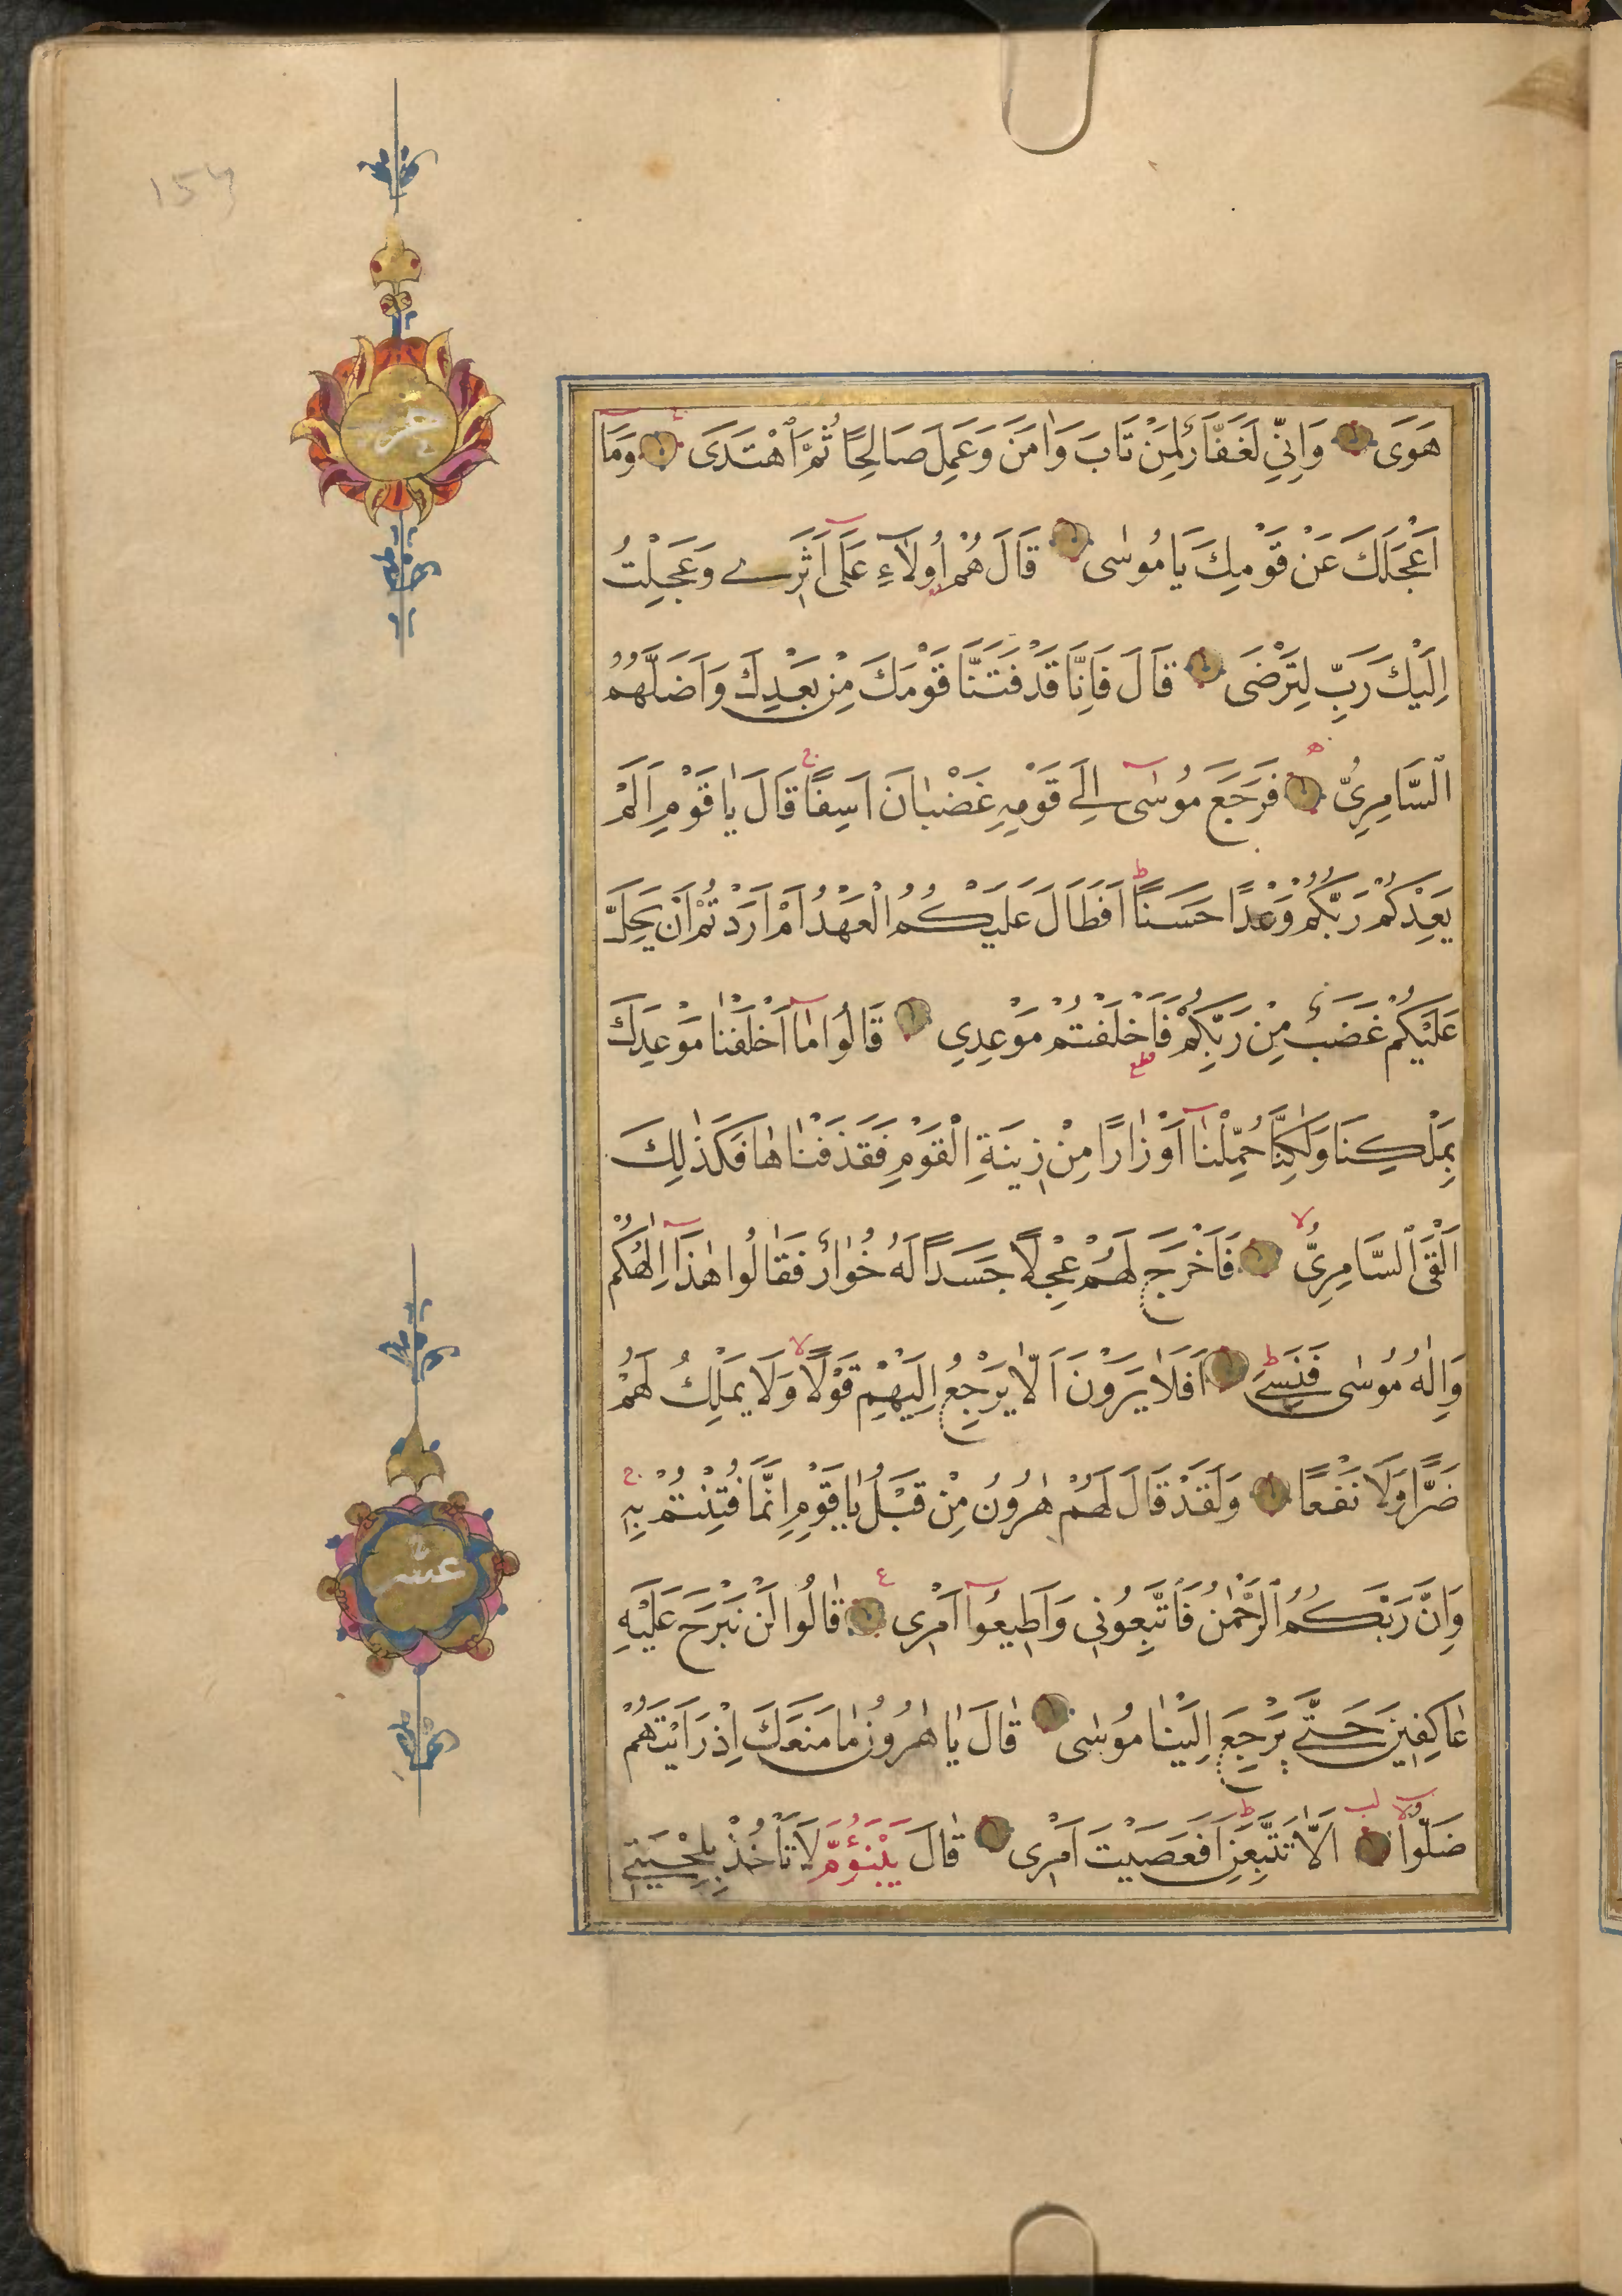 هَوَى وَاِنِّي لَغَفَّارٌ لِمَنْ تَابَ وَاٰمَنَ وَعَمِلَ صَالِحًا ثُمَّ اهْتَدَى وَمَا
اَعْجَلَكَ عَنْ قَوْمِكَ يَا مُوسٰى قَالَ هُمْ اُولَآءِ عَلَى اَثَرِي وَعَجِلْتُ
اِلَيْكَ رَبِّ لِتَرْضَى قَالَ فَاِنَّا قَدْ فَتَنَّا قَوْمَكَ مِنْ بَعْدِكَ وَاَضَلَّهُمُ
السَّامِرِيُّ فَرَجَعَ مُوسٰى اِلَى قَوْمِهِ غَضْبَانَ اَسِفًا قَالَ يَا قَوْمِ اَلَمْ
يَعِدْكُمْ رَبُّكُمْ وَعْدًا حَسَنًا اَفَطَالَ عَلَيْكُمُ الْعَهْدُ اَمْ اَرَدْتُمْ اَنْ يَحِلَّ
عَلَيْكُمْ غَضَبٌ مِنْ رَبِّكُمْ فَاَخْلَفْتُمْ مَوْعِدِي قَالُوا مَا اَخْلَفْنَا مَوْعِدَكَ
بِمَلْكِنَا وَلٰكِنَّا حُمِّلْنَا اَوْزَارًا مِنْ زِينَةِ الْقَوْمِ فَقَذَفْنَاهَا فَكَذٰلِكَ
اَلْقَى السَّامِرِيُّ فَاَخْرَجَ لَهُمْ عِجْلًا جَسَدًا لَهُ خُوَارٌ فَقَالُوا هٰذَا اِلٰهُكُمْ
وَاِلٰهُ مُوسٰى فَنَسِيَ اَفَلَا يَرَوْنَ اَلَّا يَرْجِعُ اِلَيْهِمْ قَوْلًا وَلَا يَمْلِكُ لَهُمْ
ضَرًّا وَلَا نَفْعًا وَلَقَدْ قَالَ لَهُمْ هٰرُونُ مِنْ قَبْلُ يَا قَوْمِ اِنَّمَا فُتِنْتُمْ بِهِ
وَاِنَّ رَبَّكُمُ الرَّحْمٰنُ فَاتَّبِعُونِي وَاَطِيعُوا اَمْرِى قَالُوا لَنْ نَبْرَحَ عَلَيْهِ
عَاكِفِينَ حَتَّى يَرْجِعَ اِلَيْنَا مُوسٰى قَالَ يَا هٰرُونُ مَا مَنَعَكَ اِذْ رَاَيْتَهُمْ
ضَلُّوا اَلَّا تَتَّبِعَنِ اَفَعَصَيْتَ اَمْرِى قَالَ يَبْنَؤُمَّ لَا تَأْخُذْ بِلِحْيَتِي
عشر